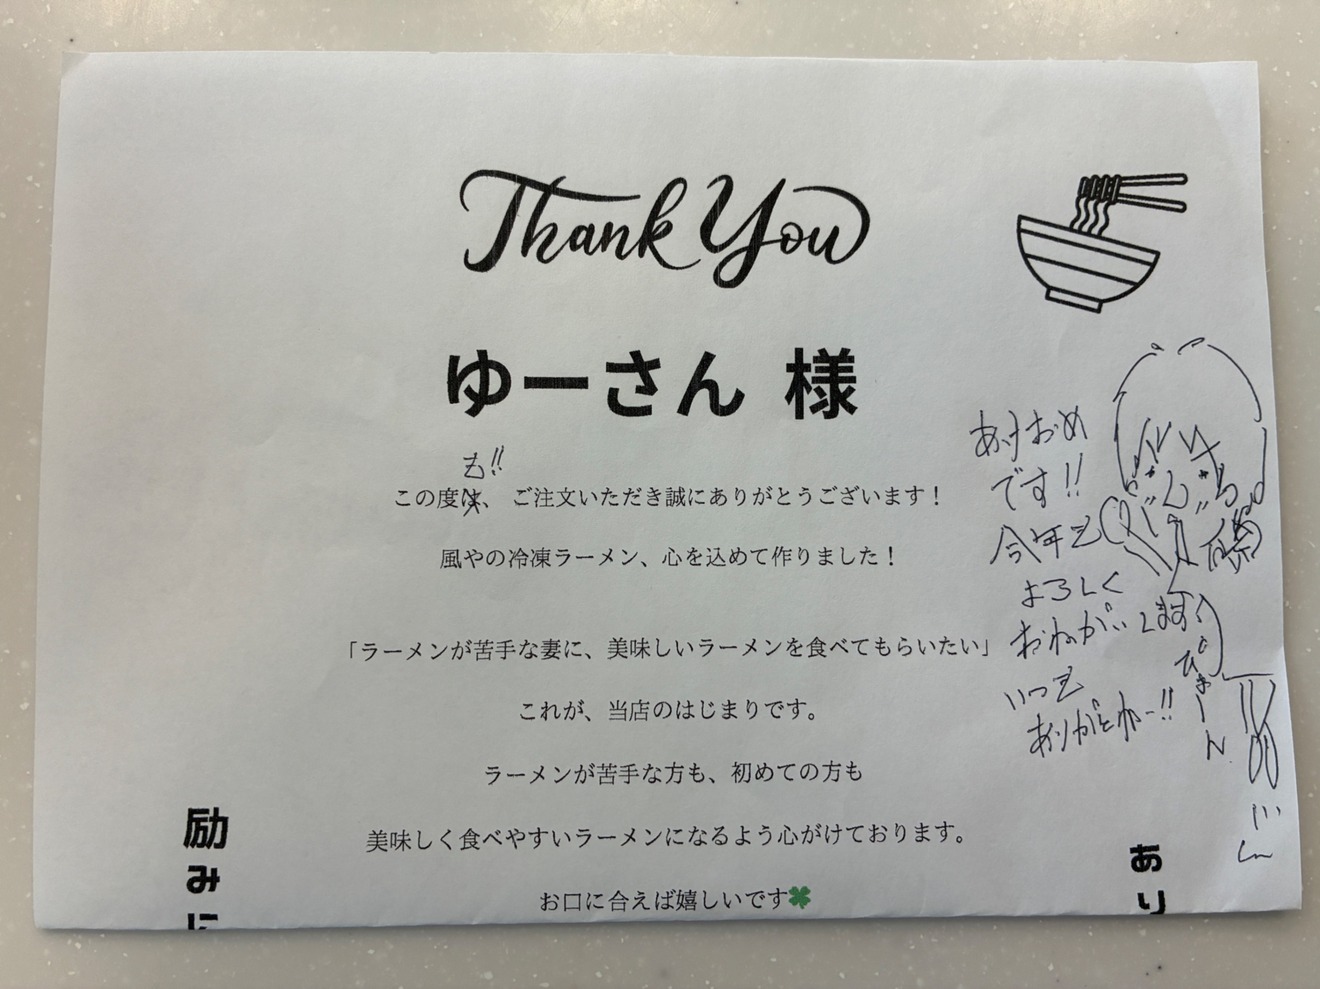 Thank You
ゆーさん 様
も!!
この度は、 ご注文いただき誠にありがとうございます！
風やの冷凍ラーメン、心を込めて作りました！
「ラーメンが苦手な妻に、美味しいラーメンを食べてもらいたい」
これが、当店のはじまりです。
ラーメンが苦手な方も、初めての方も
美味しく食べやすいラーメンになるよう心がけております。
お口に合えば嬉しいです🍀
あけおめ
です!!
今年も
よろしく
おねがいします
いつも
ありがとねー!!
ぴょーん
励みに
あり